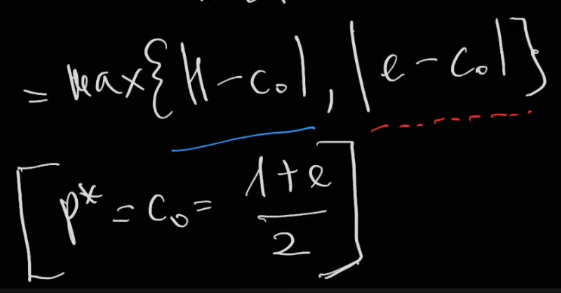 = max{|1-c₀|, |e-c₀|}
[p* = c₀ = (1+e)/2]